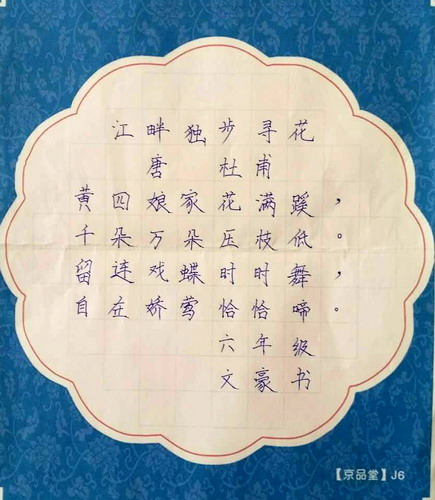 江畔独步寻花
唐 杜甫
黄四娘家花满蹊，
千朵万朵压枝低。
留连戏蝶时时舞，
自在娇莺恰恰啼。
六年级
文豪书
【京品堂】J6